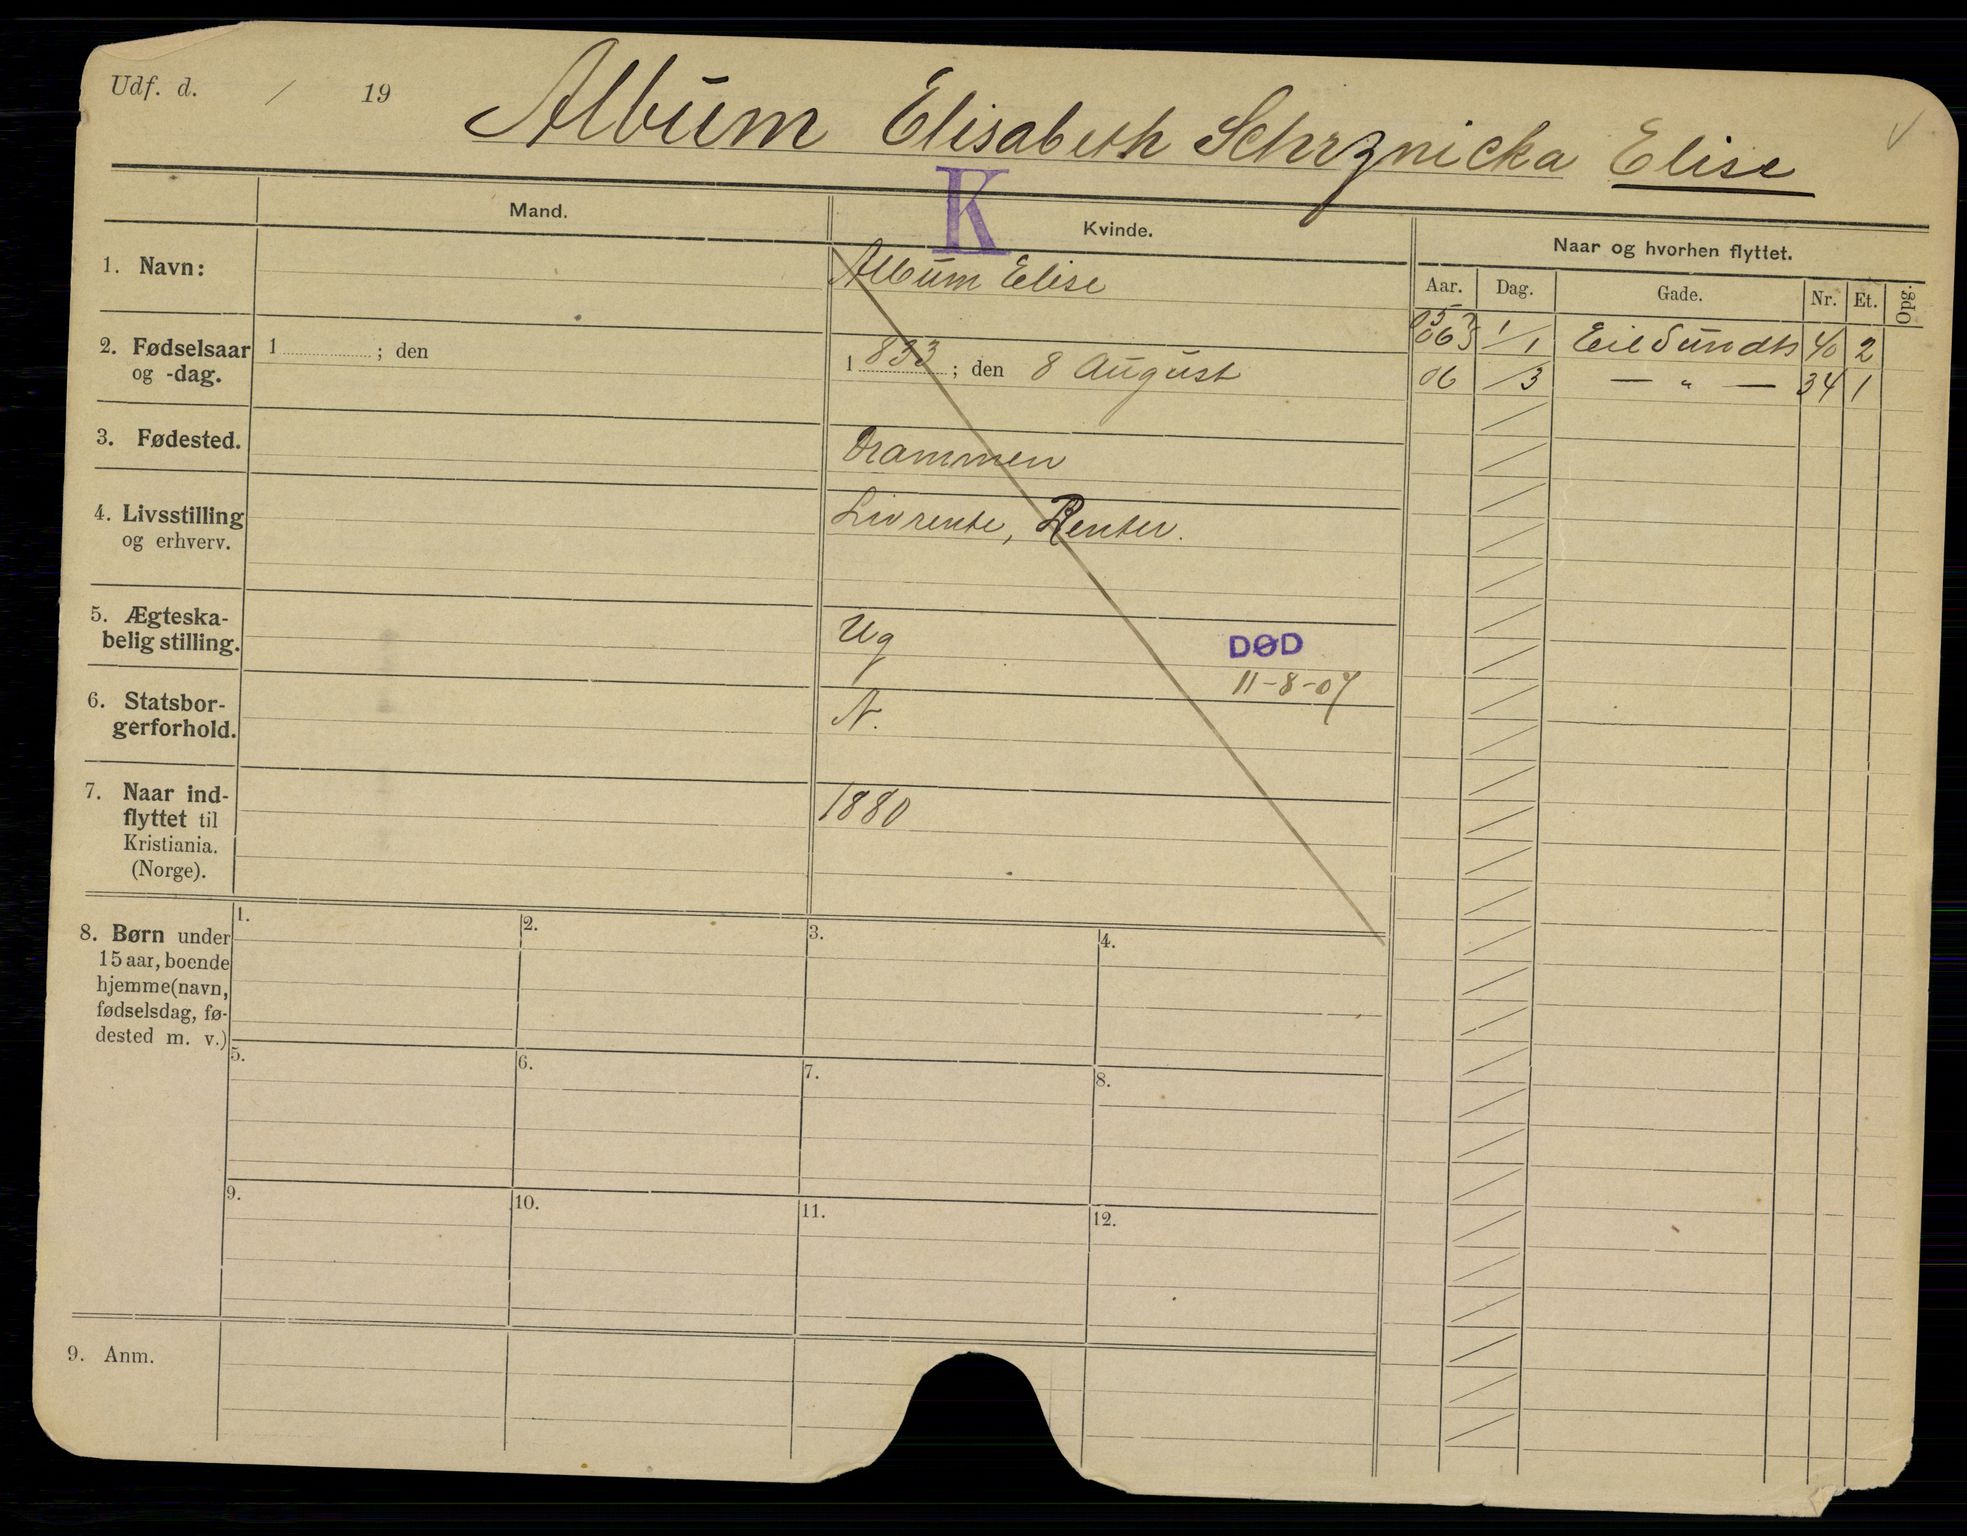 Udf. d. / 19
Album Elisabeth Schrznicka Elise
K
Mand.
Kvinde.
Naar og hvorhen flyttet.
Aar. Dag. Gade. Nr. Et. Opg.
1. Navn:
Album Elise
05 1/1 Eil Sundts 40 2
06 /3 — " — 34 1
2. Fødselsaar
og -dag.
1 ; den
1 833 ; den 8 August
3. Fødested.
Drammen
4. Livsstilling
og erhverv.
Livrente, Renter.
5. Ægteska-
belig stilling.
Ug
DØD
11-8-07
6. Statsbor-
gerforhold.
N.
7. Naar ind-
flyttet til
Kristiania.
(Norge).
1880
8. Børn under
15 aar, boende
hjemme (navn,
fødselsdag, fø-
dested m. v.)
1. 2. 3. 4.
5. 6. 7. 8.
9. 10. 11. 12.
9. Anm.